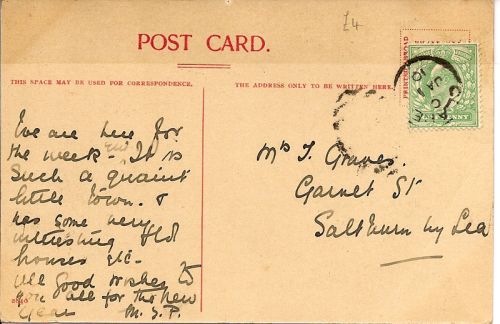 £4
POST CARD.
THIS SPACE MAY BE USED FOR CORRESPONDENCE.
THE ADDRESS ONLY TO BE WRITTEN HERE.
We are here for
the week-end. It is
such a quaint
little town. &
has some very
interesting old
houses etc.
All good wishes to
you all for the new
year M.S.P.
Mrs T. Graves.
Garnet St
Saltburn by Sea